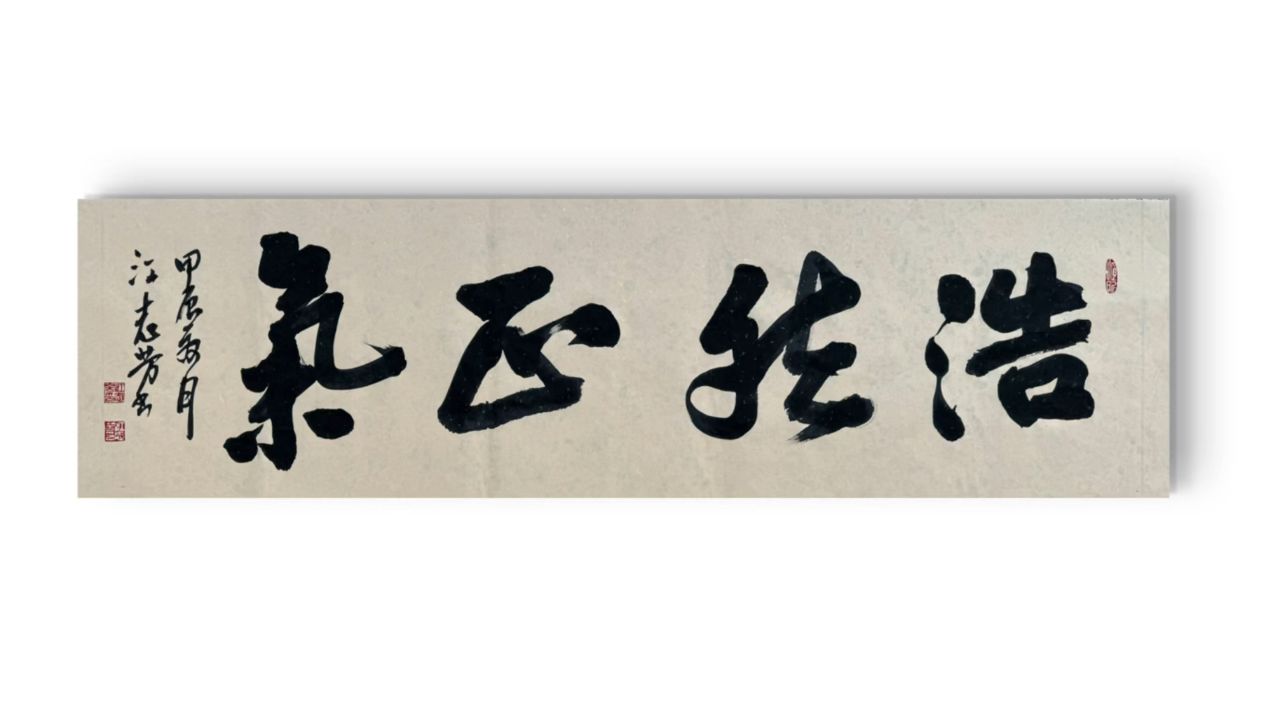 浩然正氣
甲辰夏月
志芳书